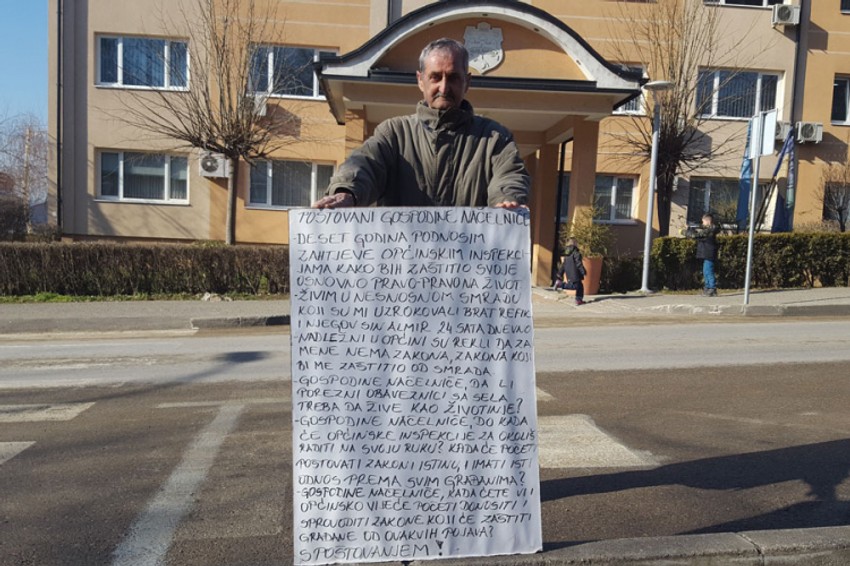 POŠTOVANI GOSPODINE NAČELNIČE
-DESET GODINA PODNOSIM
ZAHTJEVE OPĆINSKIM INSPEKCI-
JAMA KAKO BIH ZAŠTITIO SVOJE
OSNOVNO PRAVO-PRAVO NA ŽIVOT.
-ŽIVIM U NESNOSNOM SMRADU
KOJI SU MI UZROKOVALI BRAT REFIK
I NJEGOV SIN ALMIR. 24 SATA DNEVNO
-NADLEŽNI U OPĆINI SU REKLI DA ZA
MENE NEMA ZAKONA, ZAKONA KOJI
BI ME ZAŠTITIO OD SMRADA
-GOSPODINE NAČELNIČE, DA LI
POREZNI OBAVEZNICI SA SELA
TREBA DA ŽIVE KAO ŽIVOTINJE?
-GOSPODINE NAČELNIČE, DO KADA
ĆE OPĆINSKE INSPEKCIJE ZA OKOLIŠ
RADITI NA SVOJU RUKU? KADA ĆE POČETI
POŠTOVATI ZAKON I ISTINU, I IMATI ISTI
ODNOS PREMA SVIM GRAĐANIMA?
-GOSPODINE NAČELNIČE, KADA ĆETE VI I
OPĆINSKO VIJEĆE POČETI DONOSITI I
SPROVODITI ZAKONE KOJI ĆE ZAŠTITI
GRAĐANE OD OVAKVIH POJAVA?
S POŠTOVANJEM!